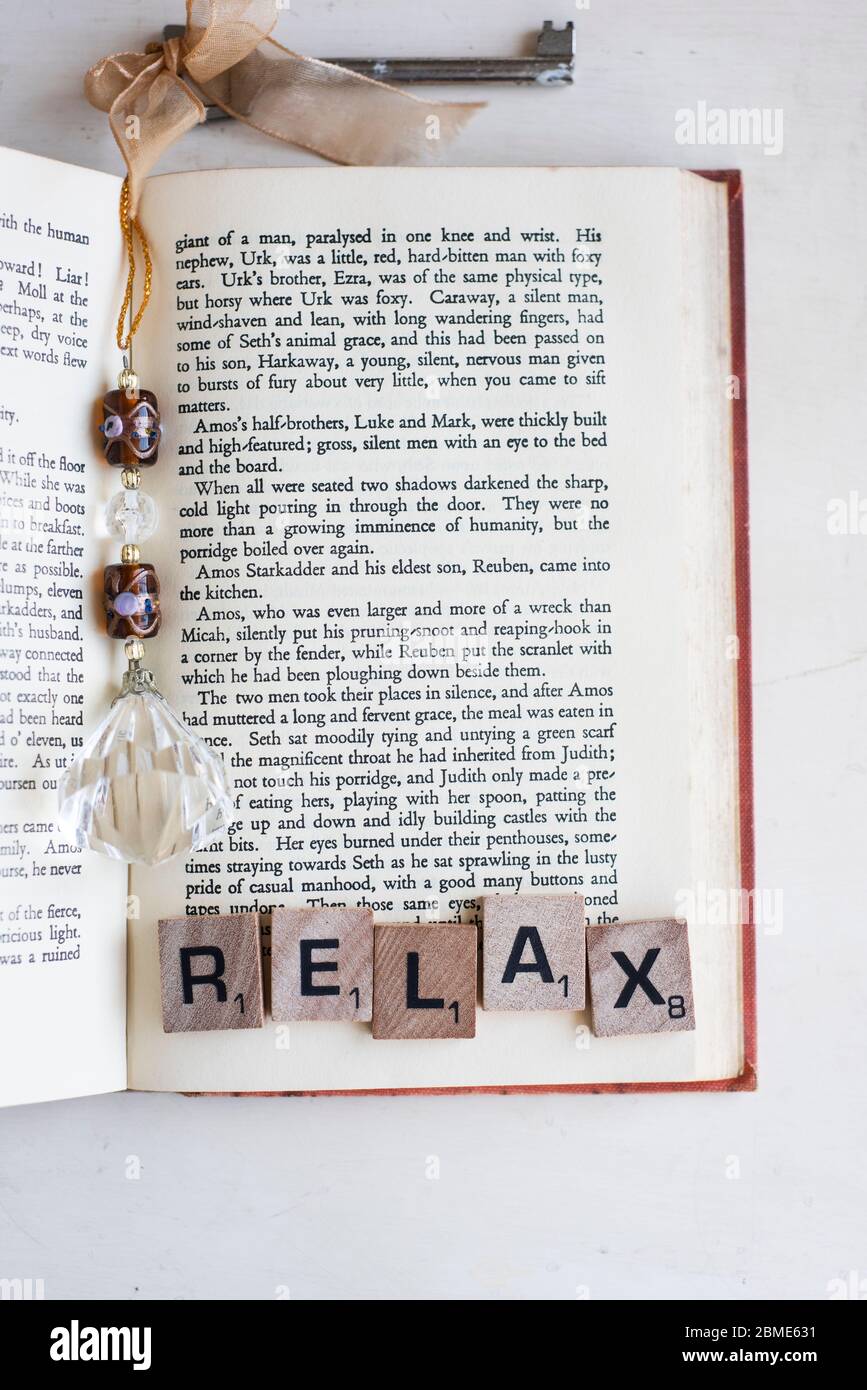 with the human
oward! Liar!
? Moll at the
perhaps, at the
eep, dry voice
ext words flew
ity.
d it off the floor
While she was
oices and boots
n to breakfast.
le at the farther
re as possible.
lumps, eleven
rkadders, and
ith's husband.
way connected
stood that the
ot exactly one
ad been heard
d o' eleven, us
ire. As ut i
oursen ou
ners came
mily. Amos
urse, he never
of the fierce,
pricious light.
was a ruined
giant of a man, paralysed in one knee and wrist. His
nephew, Urk, was a little, red, hard-bitten man with foxy
ears. Urk's brother, Ezra, was of the same physical type,
but horsy where Urk was foxy. Caraway, a silent man,
wind-shaven and lean, with long wandering fingers, had
some of Seth's animal grace, and this had been passed on
to his son, Harkaway, a young, silent, nervous man given
to bursts of fury about very little, when you came to sift
matters.
Amos's half-brothers, Luke and Mark, were thickly built
and high-featured; gross, silent men with an eye to the bed
and the board.
When all were seated two shadows darkened the sharp,
cold light pouring in through the door. They were no
more than a growing imminence of humanity, but the
porridge boiled over again.
Amos Starkadder and his eldest son, Reuben, came into
the kitchen.
Amos, who was even larger and more of a wreck than
Micah, silently put his pruning-snoot and reaping-hook in
a corner by the fender, while Reuben put the scranlet with
which he had been ploughing down beside them.
The two men took their places in silence, and after Amos
had muttered a long and fervent grace, the meal was eaten in
ence. Seth sat moodily tying and untying a green scarf
the magnificent throat he had inherited from Judith;
not touch his porridge, and Judith only made a pre-
of eating hers, playing with her spoon, patting the
ge up and down and idly building castles with the
urnt bits. Her eyes burned under their penthouses, some-
times straying towards Seth as he sat sprawling in the lusty
pride of casual manhood, with a good many buttons and
tapes undone. Then those same eyes, oned
and until the
RELAX
1 1 1 1 8
alamy
Image ID: 2BME631
www.alamy.com